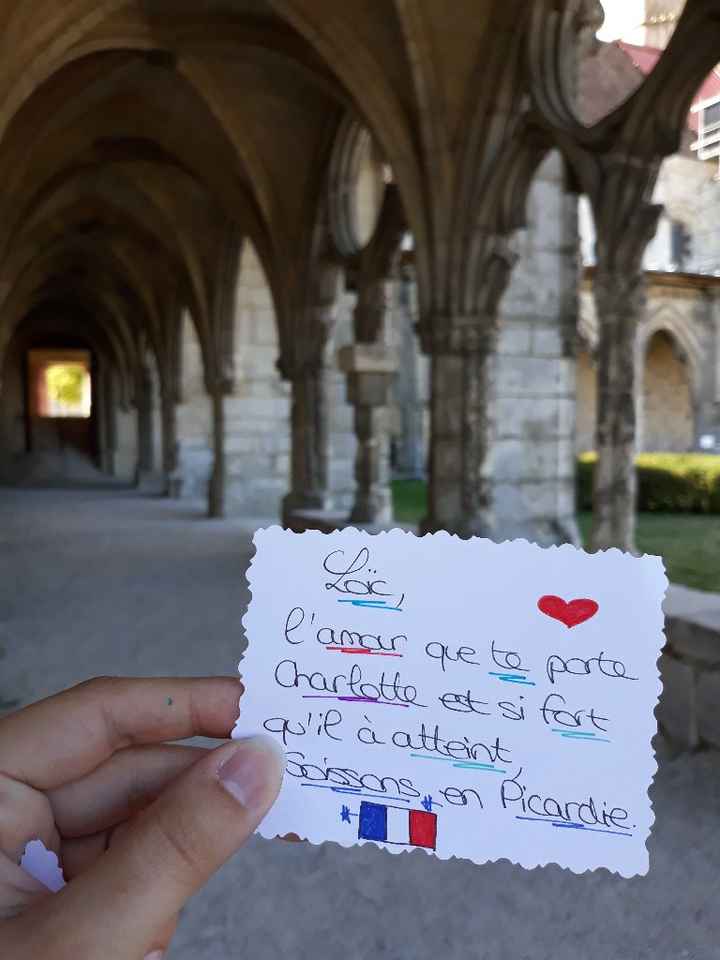 Loïc,
l'amour que te porte
Charlotte est si fort
qu'il à atteint,
Soissons en Picardie.